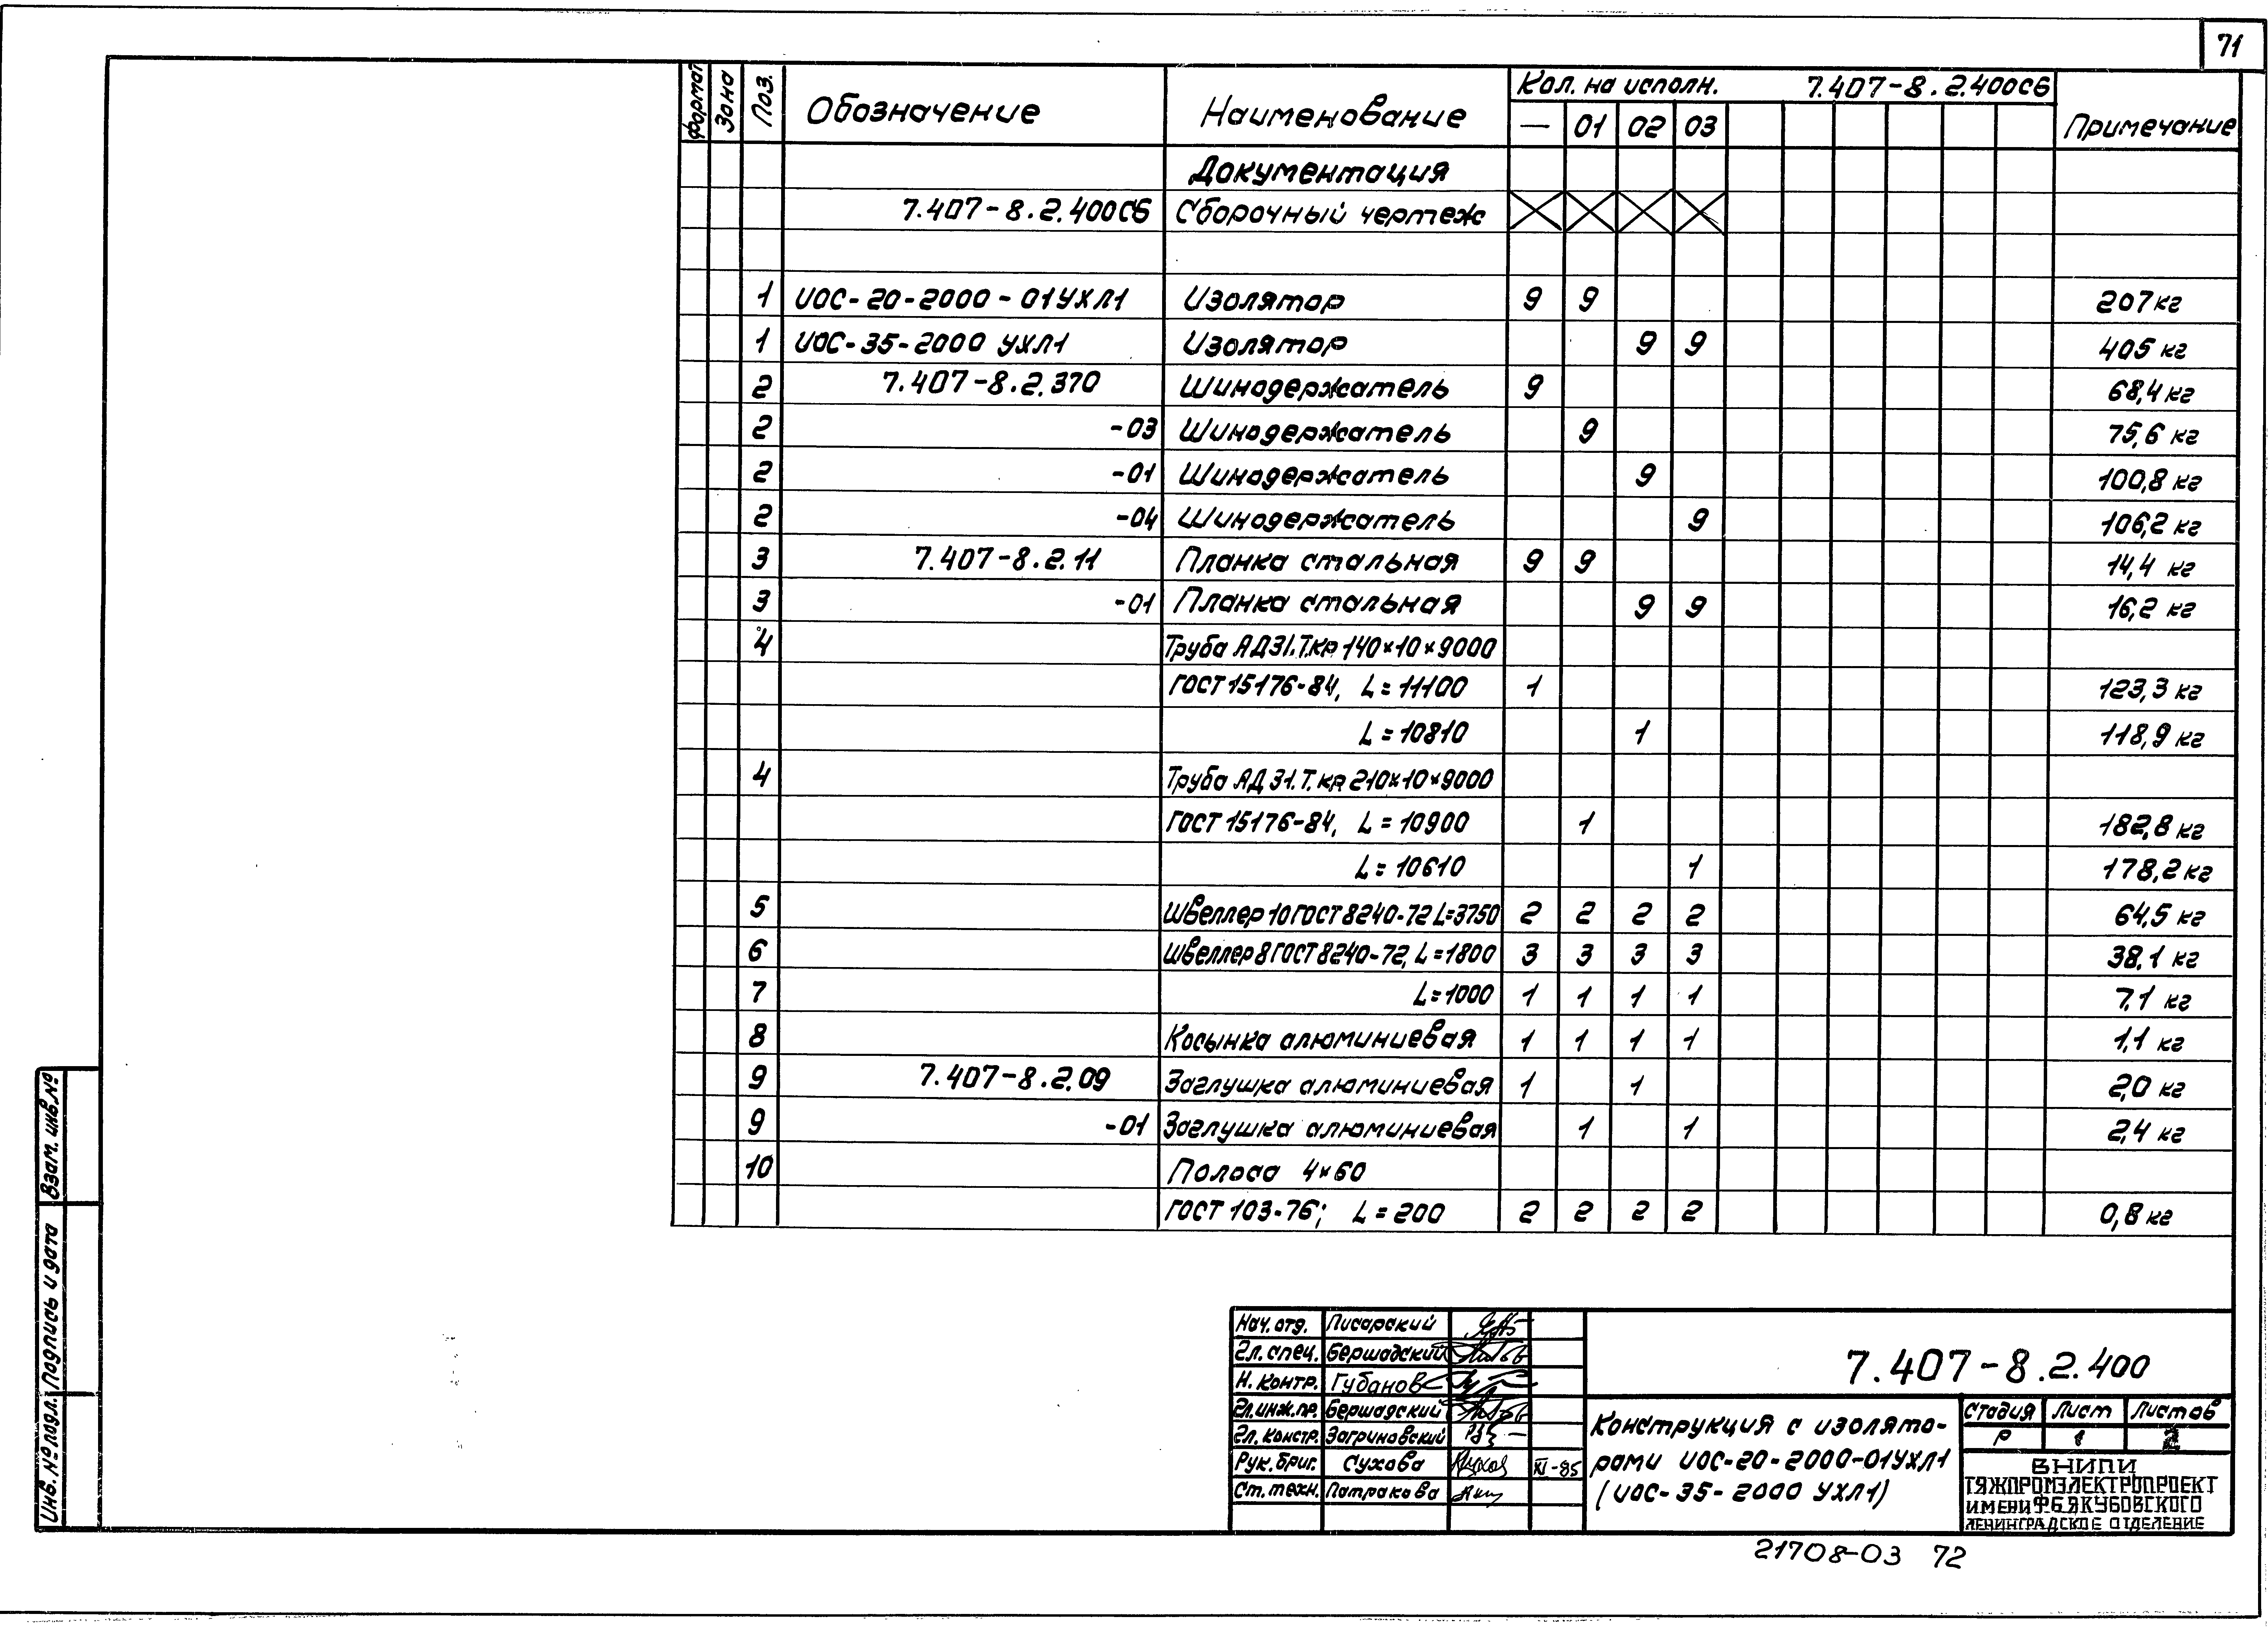 71
Формат Зона Поз. Обозначение Наименование Кол. на исполн. 7.407-8.2.400СБ Примечание
— 01 02 03
Документация
7.407-8.2.400СБ Сборочный чертеж
1 ИОС-20-2000-01УХЛ1 Изолятор 9 9 207кг
1 ИОС-35-2000 УХЛ1 Изолятор 9 9 405 кг
2 7.407-8.2.370 Шинодержатель 9 68,4 кг
2 -03 Шинодержатель 9 75,6 кг
2 -01 Шинодержатель 9 100,8 кг
2 -04 Шинодержатель 9 106,2 кг
3 7.407-8.2.11 Планка стальная 9 9 14,4 кг
3 -01 Планка стальная 9 9 16,2 кг
4 Труба АД31.Т.кр 140×10×9000
ГОСТ 15176-84, L=11100 1 123,3 кг
L=10810 1 118,9 кг
4 Труба АД31.Т.кр 210×10×9000
ГОСТ 15176-84, L=10900 1 182,8 кг
L=10610 1 178,2 кг
5 Швеллер 10 ГОСТ 8240-72 L=3750 2 2 2 2 64,5 кг
6 Швеллер 8 ГОСТ 8240-72, L=1800 3 3 3 3 38,1 кг
7 L=1000 1 1 1 1 7,1 кг
8 Косынка алюминиевая 1 1 1 1 1,1 кг
9 7.407-8.2.09 Заглушка алюминиевая 1 1 2,0 кг
9 -01 Заглушка алюминиевая 1 1 2,4 кг
10 Полоса 4×60
ГОСТ 103-76; L=200 2 2 2 2 0,8 кг
Взам. инв.№
Подпись и дата
Инв.№ подл.
Нач. отд. Писарский
Гл. спец. Бершадский
Н. контр. Губанов
Гл.инж.пр. Бершадский
Гл. констр. Загриновский
Рук. бриг. Сухова XI-85
Ст. техн. Патракова
7.407-8.2.400
Конструкция с изолято-
рами ИОС-20-2000-01УХЛ1
(ИОС-35-2000 УХЛ1)
Стадия Лист Листов
Р 1 2
ВНИПИ
ТЯЖПРОМЭЛЕКТРОПРОЕКТ
ИМЕНИ Ф.Б.ЯКУБОВСКОГО
ЛЕНИНГРАДСКОЕ ОТДЕЛЕНИЕ
21708-03 72